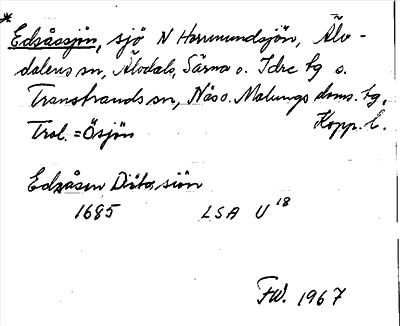 * Edsåssjön, sjö N Horrmundsjön, Älv-
dalens sn, Älvdals, Särna o. Idre tg o.
Transtrands sn, Nås o. Malungs doms. tg,
Trol. = Ösjön Kopp. l.
Edsåsen siön
1685 LSA U 18
FW. 1967